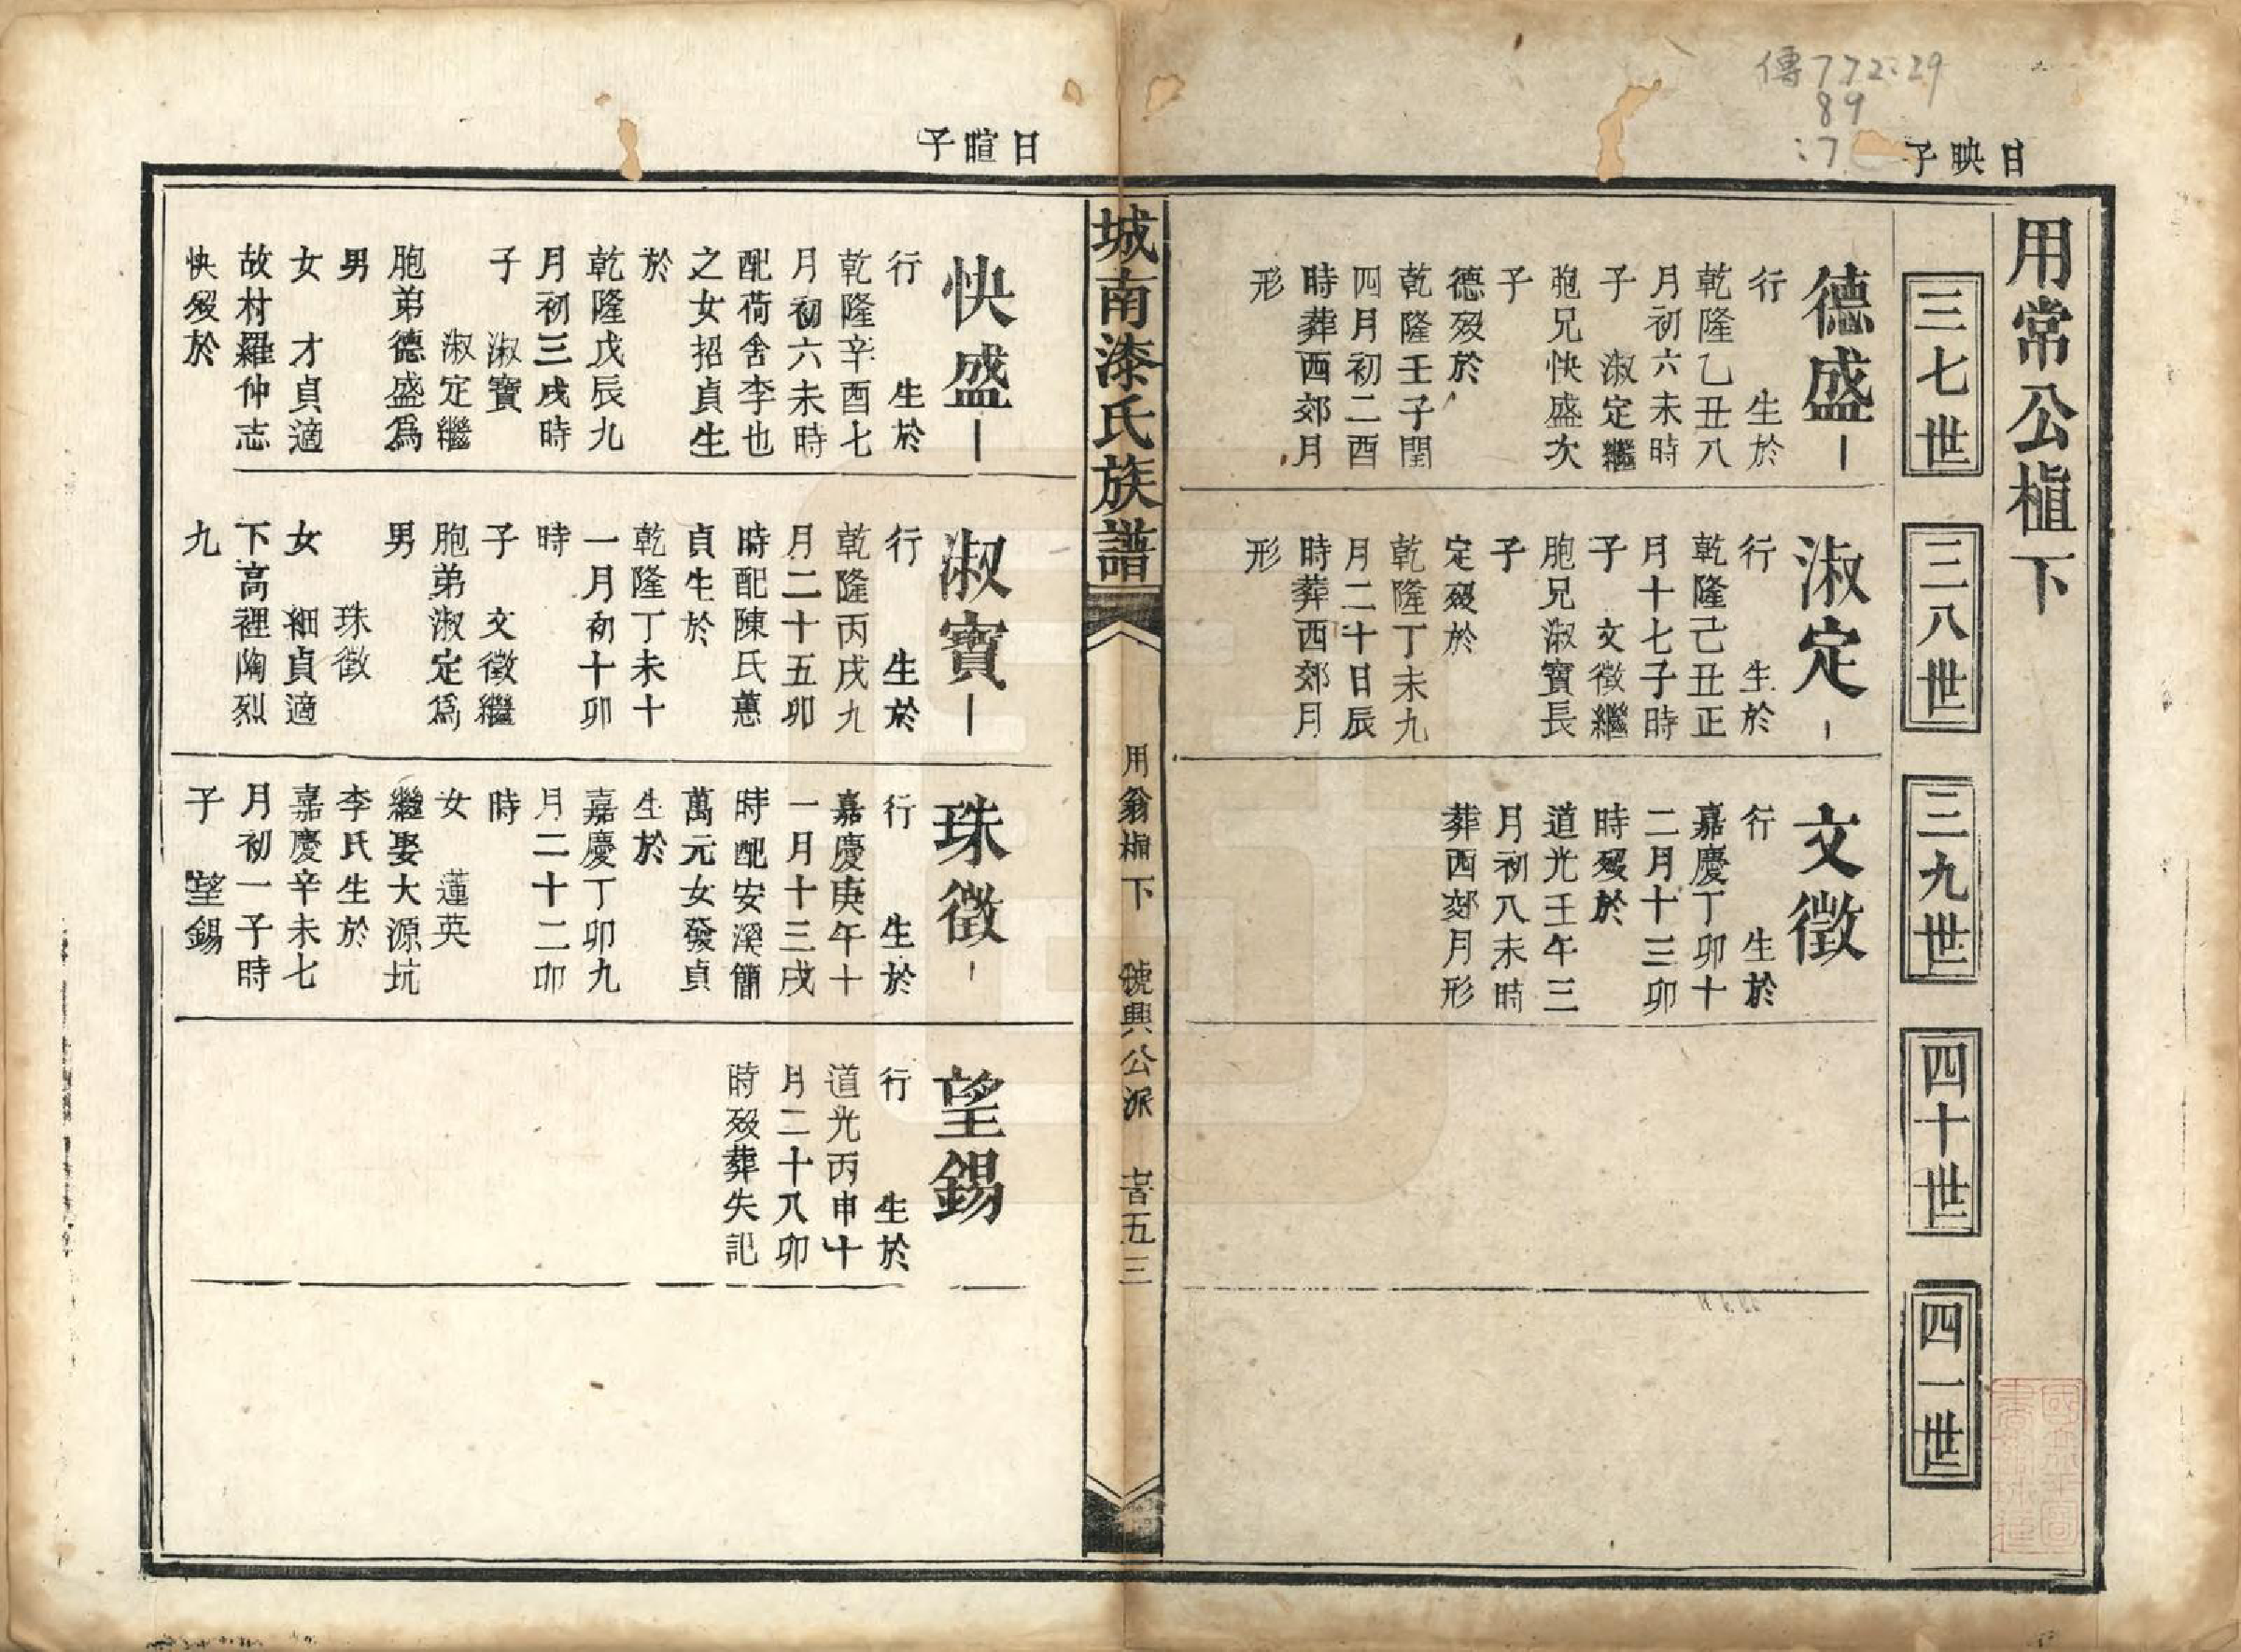 傳772.29
89
:7
日映子
用常公楦下
三七世
三八世
三九世
四十世
四一世
德盛
行 生於
乾隆乙丑八
月初六未時
子 淑定繼
胞兄快盛次
子
德歿於
乾隆壬子閏
四月初二酉
時葬西郊月
形
淑定
行 生於
乾隆己丑正
月十七子時
子 文徵繼
胞兄淑寶長
子
定歿於
乾隆丁未九
月二十日辰
時葬西郊月
形
文徵
行 生於
嘉慶丁卯十
二月十三卯
時歿於
道光壬午三
月初八未時
葬西郊月形
城南漆氏族譜
用翁楦下
號興公派
五三
日暄子
快盛
行 生於
乾隆辛酉七
月初六未時
配荷舍李也
之女招貞生
於
乾隆戊辰九
月初三戌時
子 淑寶
淑定繼
胞弟德盛爲
男
女 才貞適
故村羅仲志
快歿於
淑寶
行 生於
乾隆丙戌九
月二十五卯
時配陳氏蕙
貞生於
乾隆丁未十
一月初十卯
時
子 文徵繼
胞弟淑定爲
男
珠徵
女 細貞適
下高裡陶烈
九
珠徵
行 生於
嘉慶庚午十
一月十三戌
時配安溪簡
萬元女發貞
生於
嘉慶丁卯九
月二十二卯
時
女 蓮英
繼娶大源坑
李氏生於
嘉慶辛未七
月初一子時
子 望錫
望錫
行 生於
道光丙申十
月二十八卯
時歿葬失記